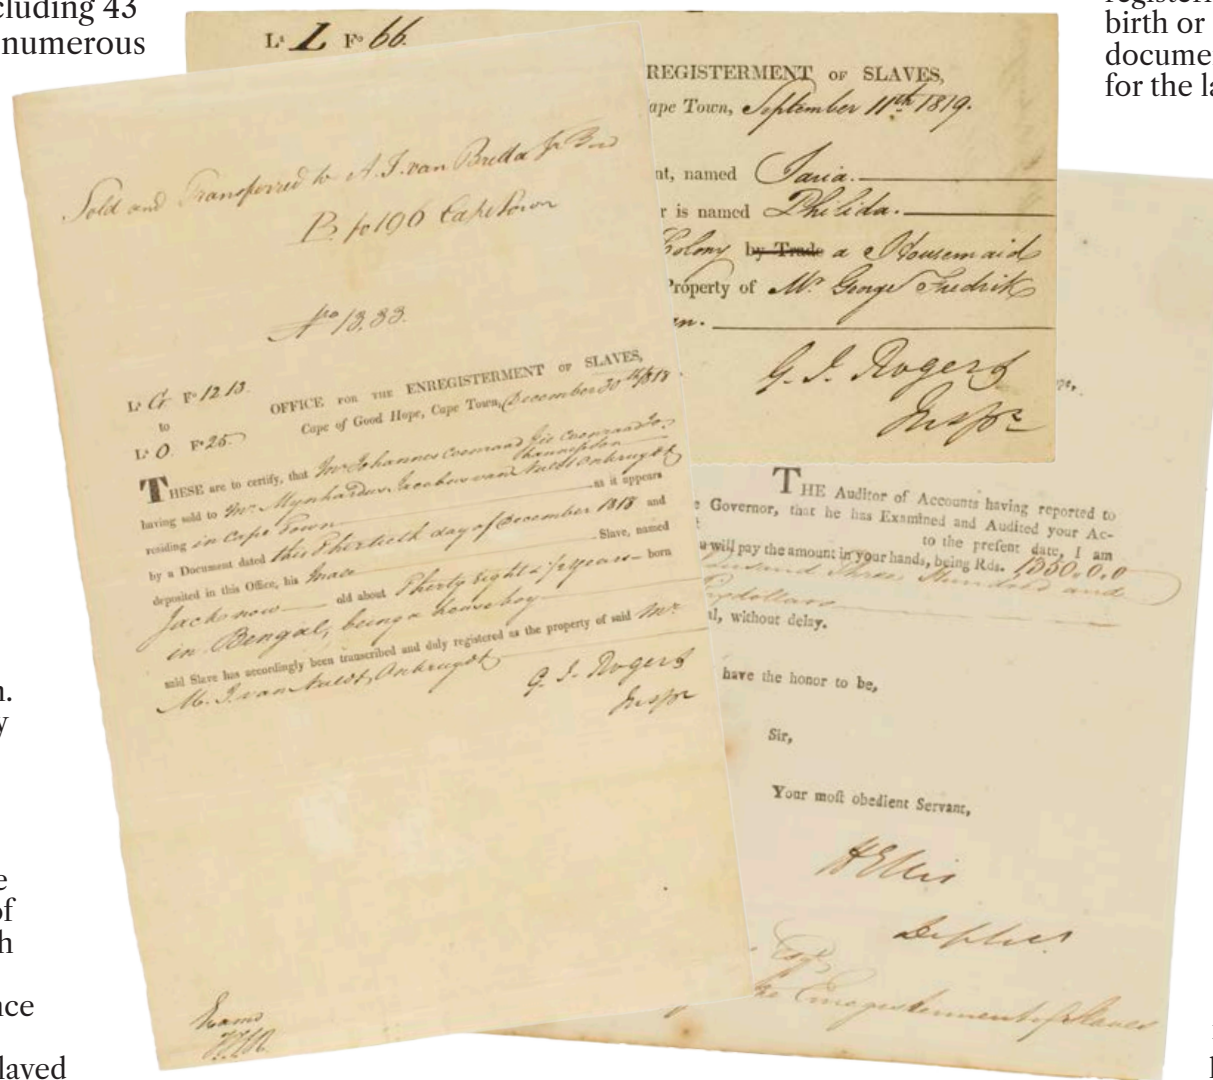 cluding 43
numerous
registeri
birth or
docume
for the la
Lª L Fº 66.
REGISTERMENT OF SLAVES,
ape Town, September 11th 1819.
nt, named Saria.
r is named Philida.
Colony by Trade a Housemaid
Property of Mr George Fredrik
n.
G. J. Rogers
Inspr
Sold and Transferred to A. J. van Breda
B. fo 196 Cape Town
No 1333.
Lª G Fº 1213.
to
Lª O Fº 25
OFFICE FOR THE ENREGISTERMENT OF SLAVES,
Cape of Good Hope, Cape Town, December 30th 1818.
THESE are to certify, that Mr Johannes Coenraad
having sold to Mr Mynhardus Jacobus van
residing in Cape Town as it appears
by a Document dated this Thertieth day of December 1818 and
deposited in this Office, his Male Slave, named
Jack now old about Therty Eight & 1/2 years born
in Bengal, being a houseboy
said Slave has accordingly been transcribed and duly registered as the property of said Mr
M. J. van
G. J. Rogers
Inspr
THE Auditor of Accounts having reported to
e Governor, that he has Examined and Audited your Ac-
to the preſent date, I am
u will pay the amount in your hands, being Rds. 1350.0.0
ousand Three Hundred and
dollars
al, without delay.
have the honor to be,
Sir,
Your moſt obedient Servant,
H Ellis
Esqr
the Enregisterment of Slaves
n.
y
e
of
h
nce
laved